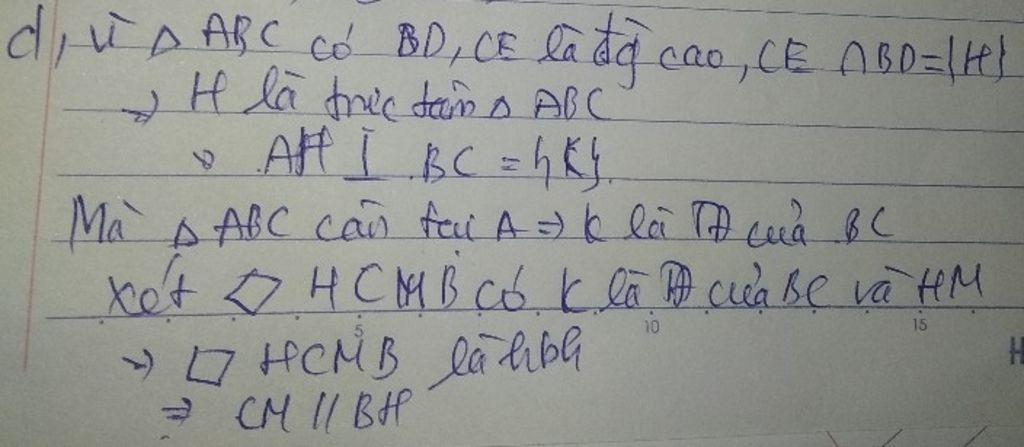 d, vì Δ ABC có BD, CE là đg cao, CE ∩ BD = {H}
→ H là trực tâm Δ ABC
AH ⊥ BC = {K}
Mà Δ ABC cân tại A ⇒ K là TĐ của BC
xét ▱ HCMB có K là TĐ của BC và HM
5 10 15
→ ▱ HCMB là hbh
H
⇒ CM // BH